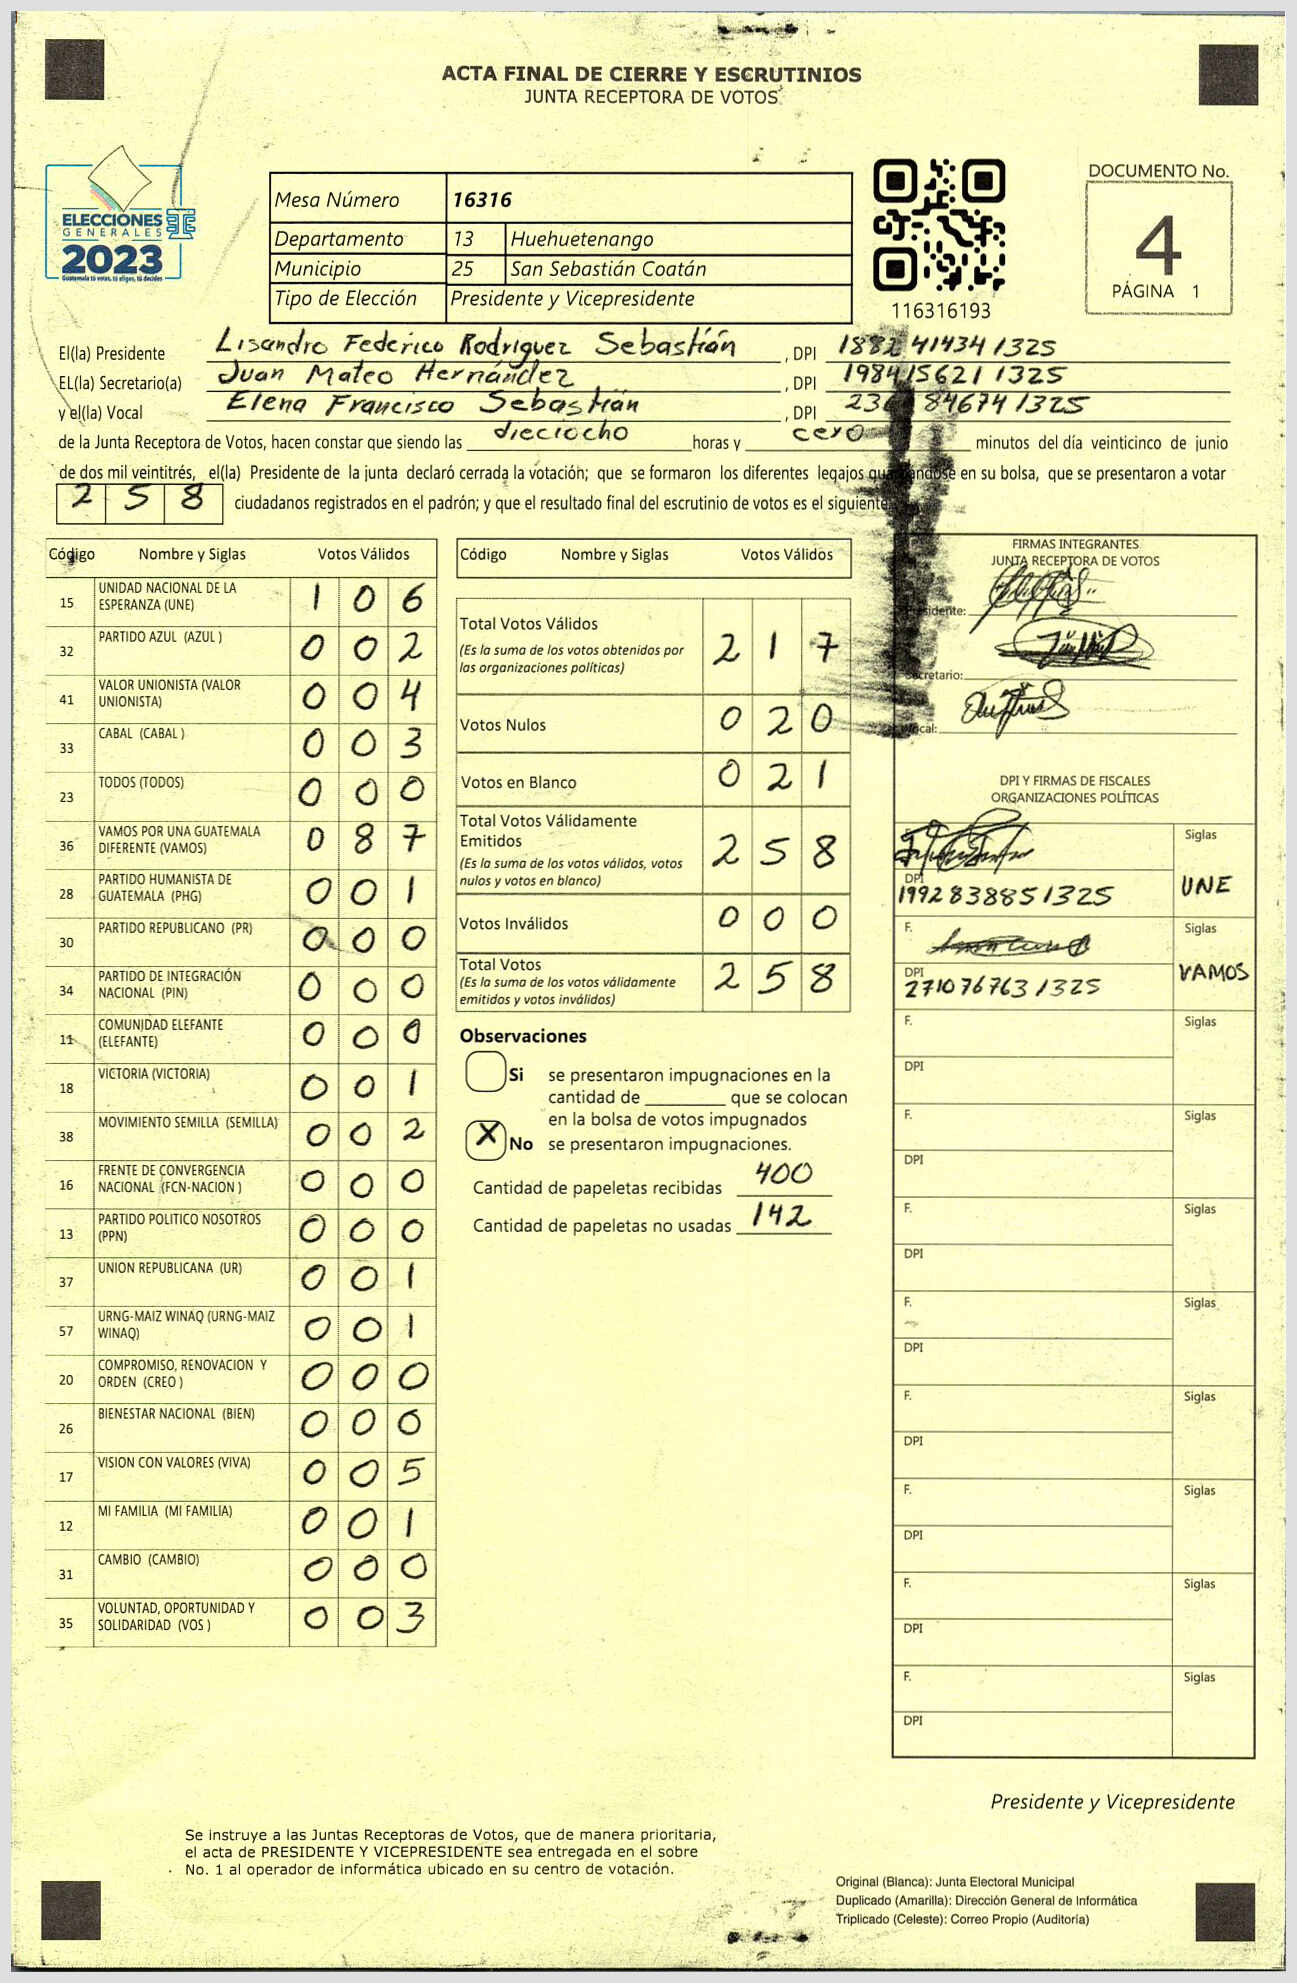 ACTA FINAL DE CIERRE Y ESCRUTINIOS
JUNTA RECEPTORA DE VOTOS
ELECCIONES
GENERALES
2023
Guatemala tú votas, tú eliges, tú decides
Mesa Número 16316
Departamento 13 Huehuetenango
Municipio 25 San Sebastián Coatán
Tipo de Elección Presidente y Vicepresidente
116316193
DOCUMENTO No.
4
PÁGINA 1
El(la) Presidente Lisandro Federico Rodriguez Sebastián, DPI 1882 41434 1325
EL(la) Secretario(a) Juan Mateo Hernández, DPI 1984156211325
y el(la) Vocal Elena Francisco Sebastián, DPI 846741325
de la Junta Receptora de Votos, hacen constar que siendo las dieciocho horas y cero minutos del día veinticinco de junio
de dos mil veintitrés, el(la) Presidente de la junta declaró cerrada la votación; que se formaron los diferentes legajos en su bolsa, que se presentaron a votar
258 ciudadanos registrados en el padrón; y que el resultado final del escrutinio de votos es el siguiente
Código Nombre y Siglas Votos Válidos
15 UNIDAD NACIONAL DE LA ESPERANZA (UNE) 1 0 6
32 PARTIDO AZUL (AZUL ) 0 0 2
41 VALOR UNIONISTA (VALOR UNIONISTA) 0 0 4
33 CABAL (CABAL ) 0 0 3
23 TODOS (TODOS) 0 0 0
36 VAMOS POR UNA GUATEMALA DIFERENTE (VAMOS) 0 8 7
28 PARTIDO HUMANISTA DE GUATEMALA (PHG) 0 0 1
30 PARTIDO REPUBLICANO (PR) 0 0 0
34 PARTIDO DE INTEGRACIÓN NACIONAL (PIN) 0 0 0
11 COMUNIDAD ELEFANTE (ELEFANTE) 0 0 0
18 VICTORIA (VICTORIA) 0 0 1
38 MOVIMIENTO SEMILLA (SEMILLA) 0 0 2
16 FRENTE DE CONVERGENCIA NACIONAL (FCN-NACION ) 0 0 0
13 PARTIDO POLITICO NOSOTROS (PPN) 0 0 0
37 UNION REPUBLICANA (UR) 0 0 1
57 URNG-MAIZ WINAQ (URNG-MAIZ WINAQ) 0 0 1
20 COMPROMISO, RENOVACION Y ORDEN (CREO ) 0 0 0
26 BIENESTAR NACIONAL (BIEN) 0 0 0
17 VISION CON VALORES (VIVA) 0 0 5
12 MI FAMILIA (MI FAMILIA) 0 0 1
31 CAMBIO (CAMBIO) 0 0 0
35 VOLUNTAD, OPORTUNIDAD Y SOLIDARIDAD (VOS ) 0 0 3
Código Nombre y Siglas Votos Válidos
Total Votos Válidos 2 1 7
(Es la suma de los votos obtenidos por
las organizaciones políticas)
Votos Nulos 0 2 0
Votos en Blanco 0 2 1
Total Votos Válidamente
Emitidos 2 5 8
(Es la suma de los votos válidos, votos
nulos y votos en blanco)
Votos Inválidos 0 0 0
Total Votos 2 5 8
(Es la suma de los votos válidamente
emitidos y votos inválidos)
Observaciones
Si se presentaron impugnaciones en la
cantidad de ________ que se colocan
en la bolsa de votos impugnados
X No se presentaron impugnaciones.
Cantidad de papeletas recibidas 400
Cantidad de papeletas no usadas 142
FIRMAS INTEGRANTES
JUNTA RECEPTORA DE VOTOS
Presidente:
Secretario:
Vocal:
DPI Y FIRMAS DE FISCALES
ORGANIZACIONES POLÍTICAS
Siglas
UNE
DPI
1992838851325
F.
Siglas
VAMOS
DPI
2710767631325
F. Siglas
DPI
F. Siglas
DPI
F. Siglas
DPI
F. Siglas
DPI
F. Siglas
DPI
F. Siglas
DPI
F. Siglas
DPI
F. Siglas
DPI
Presidente y Vicepresidente
Se instruye a las Juntas Receptoras de Votos, que de manera prioritaria,
el acta de PRESIDENTE Y VICEPRESIDENTE sea entregada en el sobre
No. 1 al operador de informática ubicado en su centro de votación.
Original (Blanca): Junta Electoral Municipal
Duplicado (Amarilla): Dirección General de Informática
Triplicado (Celeste): Correo Propio (Auditoría)